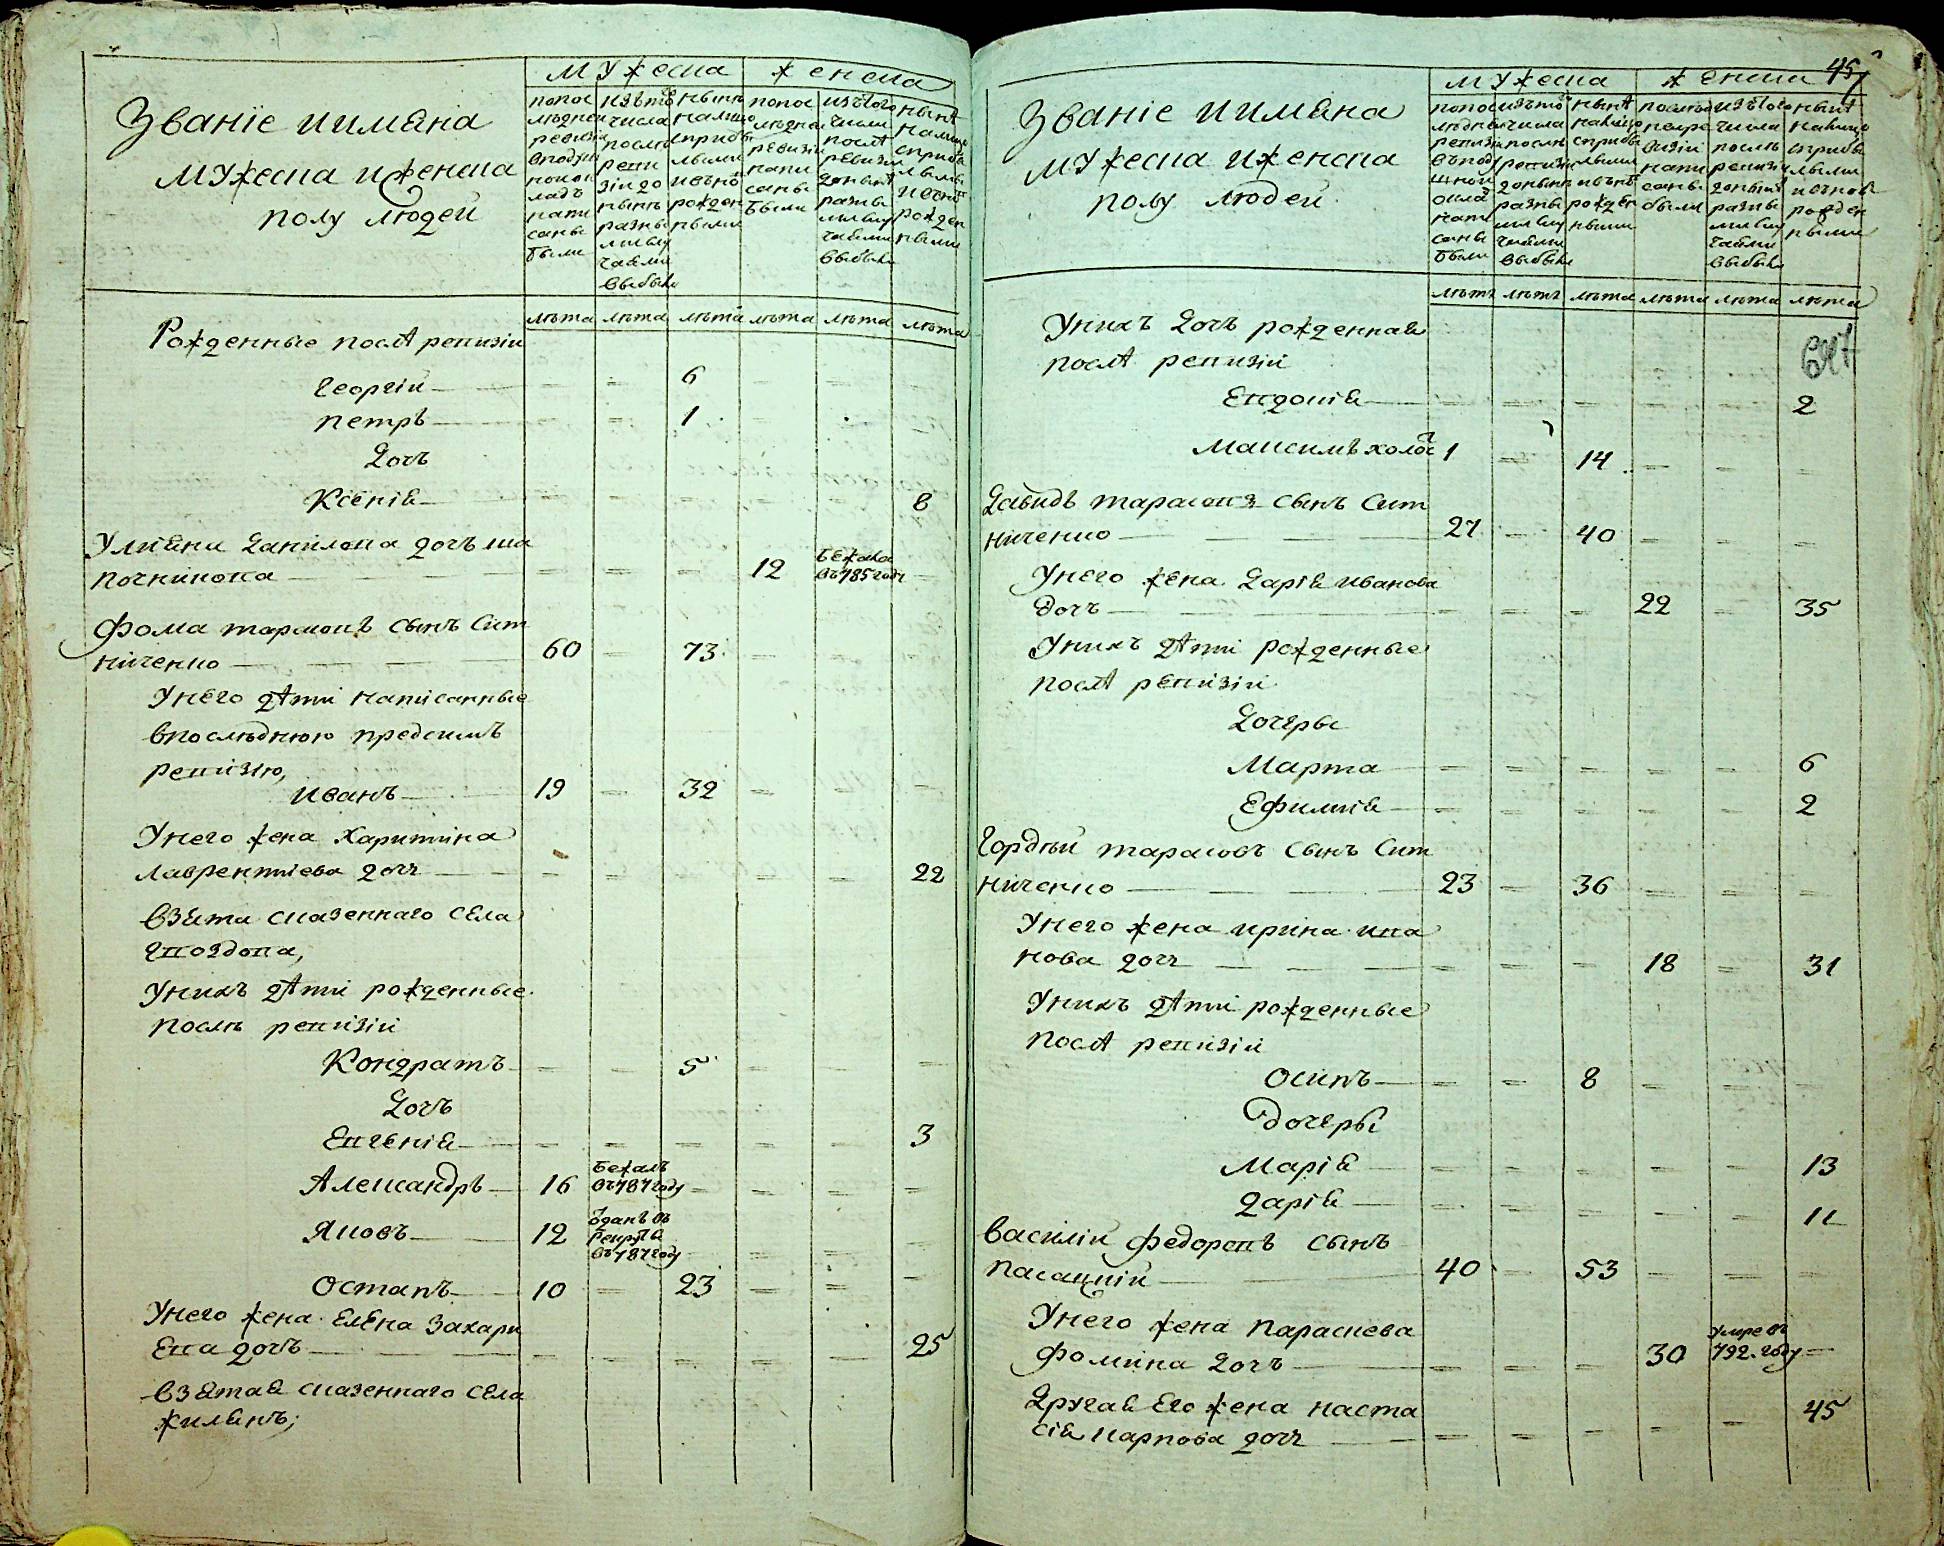 Званіе иимяна
мужеска иженска
полу людей
мужеска
женска
попос
лѣдней
ревизіи
вподуш
номок
ладъ
напи
саны
были
изътого
числа
послѣ
реви
зіи до
нынѣ
разны
ми слу
чаями
выбыло
нынѣ
налицо
сприбы
лыми
ивъно
рожден
ными
попос
лѣдней
ревизіи
напи
саны
были
изътого
числа
послѣ
ревизіи
донынѣ
разны
ми слу
чаями
выбыло
нынѣ
налицо
сприбы
лыми
ивъно
рожден
ными
лѣта лѣта лѣта лѣта лѣта лѣта
Рожденные послѣ ревизіи
Георгіи 6
Петръ 1
Дочь
Ксенія 8
Уліяна Данилова дочь ша
почникова 12 бежала въ785году
Фома тарасовъ сынъ Сит
ниченко 60 73
Унего дѣти написанные
впослѣднюю предсимъ
ревизію,
Иванъ 19 32
Унего жена Харитина
лаврентіева дочь 22
взята сказеннаго села
Гвоздова,
Унихъ дѣти рожденные
послѣ ревизіи
Кондратъ 5
Дочь
Евгенія 3
Александръ 16 бежалъ въ787году
Яковъ 12 отданъ въ рекруты въ787году
Остапъ 10 23
Унего жена Елена Захари
ева дочь 25
взятая сказеннаго села
жилинъ;
457
Званіе иимяна
мужеска иженска
полу людей
мужеска
женска
попос
лѣдней
ревизіи
въподу
шной
окла
напи
саны
были
изътого
числа
послѣ
ревизіи
донынѣ
разны
ми слу
чаями
выбыло
нынѣ
налицо
сприбы
лыми
ивънѣ
рожден
ными
послѣд
ней ре
визіи
напи
саны
были
изътого
числа
послѣ
ревизіи
донынѣ
разны
ми слу
чаями
выбыло
нынѣ
налицо
сприбы
лыми
ивънов
рожден
ными
лѣтъ лѣтъ лѣта лѣта лѣта лѣта
Унихъ дочь рожденная
послѣ ревизіи
Евдокія 2
Максимъ холос 1 14
Давидъ тарасовъ сынъ Сит
ниченко 27 40
Унего жена Дарія Иванова
дочь 22 35
Унихъ дѣти рожденные
послѣ ревизіи
Дочеры
Марта 6
Ефимія 2
Гордѣй тарасовъ сынъ Сит
ниченко 23 36
Унего жена ирина ива
нова дочь 18 31
Унихъ дѣти рожденные
послѣ ревизіи
Осипъ 8
Дочеры
Марія 13
Дарія 11
Василій Федоровъ сынъ
Пасацкій 40 53
Унего жена Параскева
фомина дочь 30 умре въ 792. году
Другая Его жена наста
сія карпова дочь 45